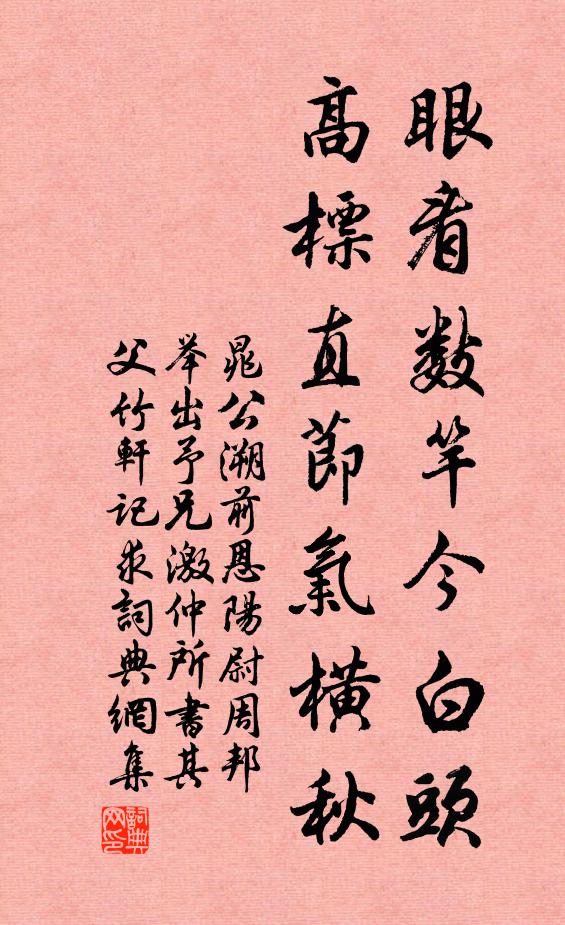 眼看数竿今白頭
高標直節氣橫秋
晁公溯前恩陽尉周邦
举出予兄激仲所書其
父竹軒記求詞典網集
詞典网印